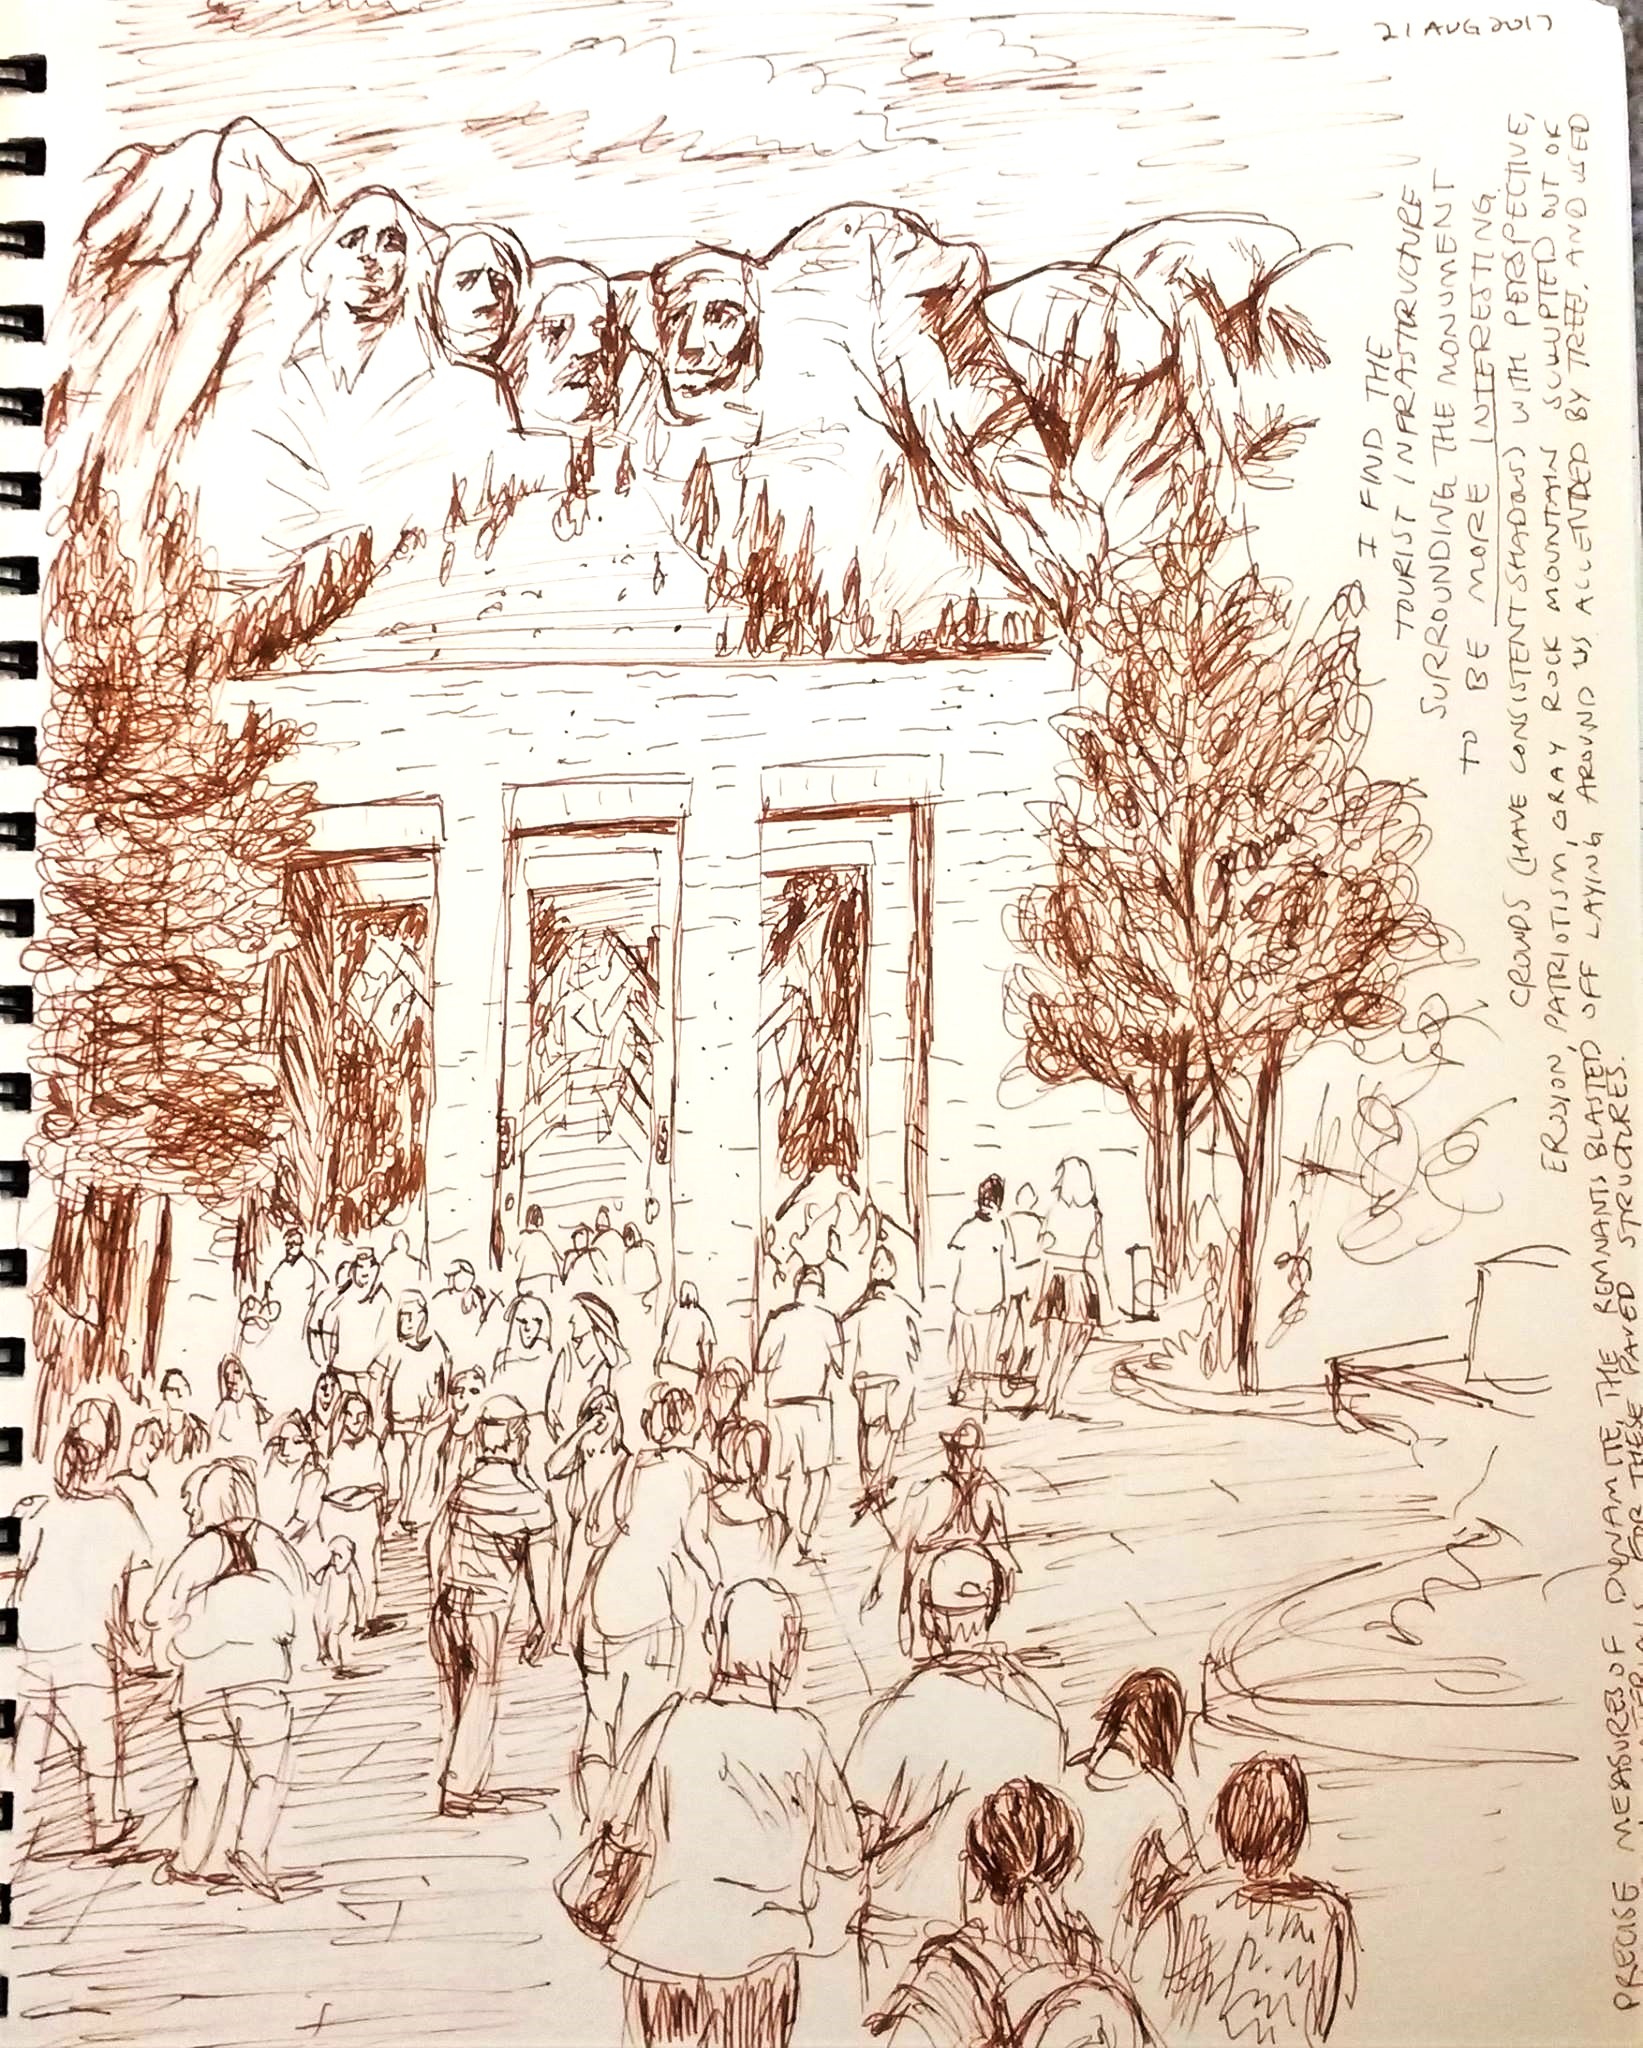 21 AUG 2017
I FIND THE
TOURIST INFRASTRUCTURE
SURROUNDING THE MONUMENT
TO BE MORE INTERESTING
CROWDS (HAVE CONSISTENT SHADOWS) WITH PERSPECTIVE,
EROSION, PATRIOTISM, GRAY ROCK MOUNTAIN SCULUPTED OUT OF
PRECISE MEASURES OF DYNAMITE, THE REMNANTS BLASTED OFF LAYING AROUND US ACCENTED BY TREE. AND USED
FOR THESE PAVED STRUCTURES.